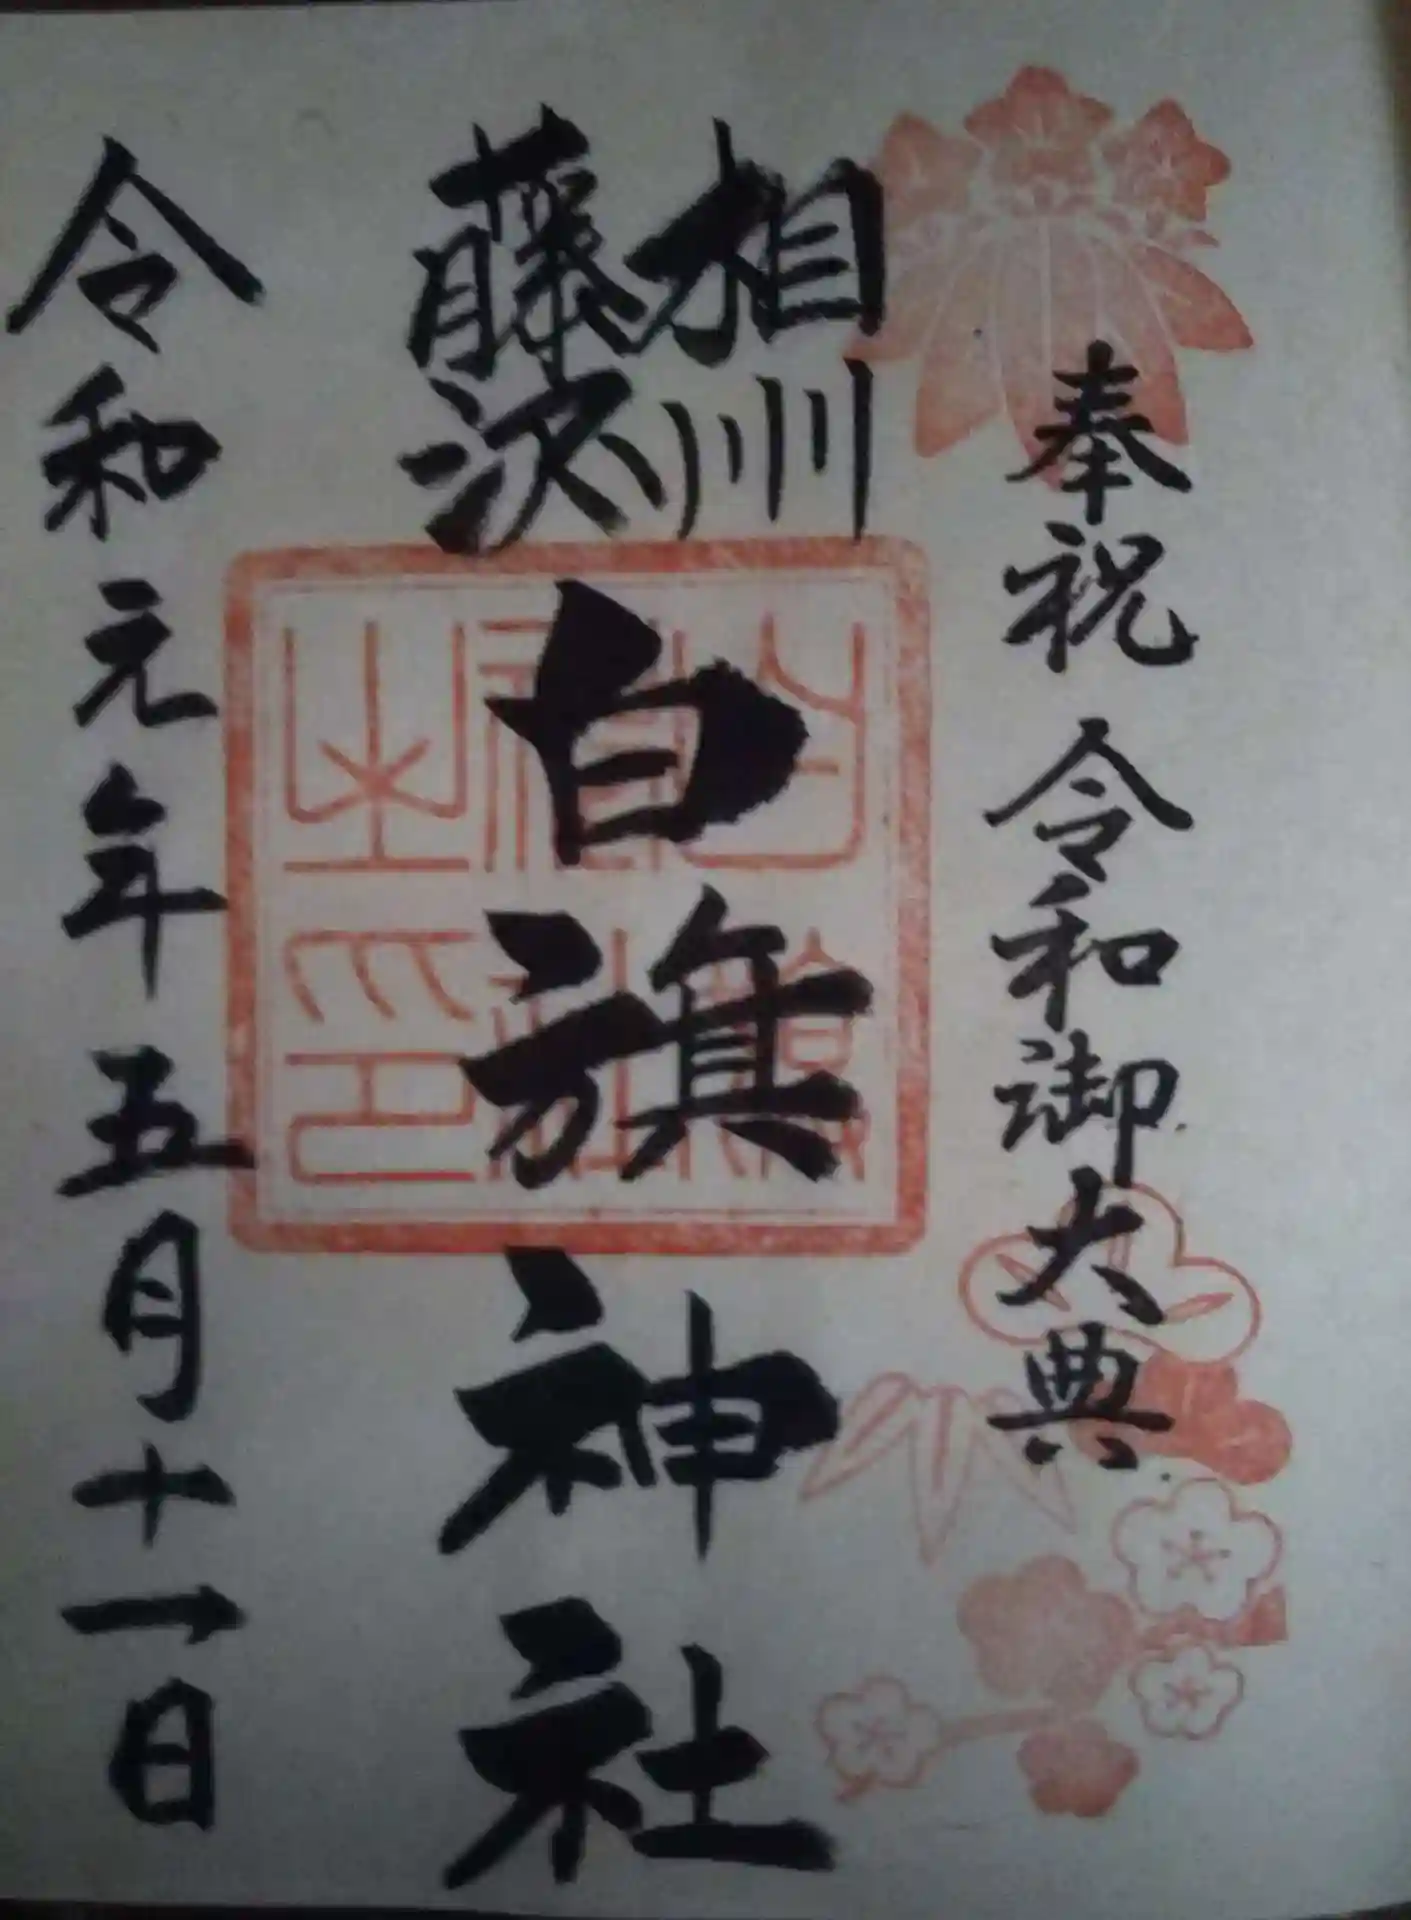 奉祝 令和御大典
相州
藤沢
白旗神社
令和元年五月十一日
白旗神社之印